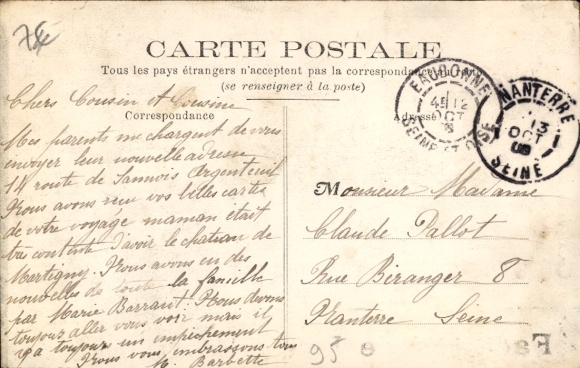 CARTE POSTALE
Tous les pays étrangers n'acceptent pas la correspondance au
(se renseigner à la poste)
Correspondance
Adresse
Chers Cousin et Cousine
Mes parents me chargent de vous
envoyer leur nouvelle adresse
14 route de Sannois Argenteuil
Nous avons reçu vos belles cartes
de votre voyage maman était
très contente d'avoir le chateau de
Martigny. Nous avons eu des
nouvelles de toute la famille
par Marie Barraut! Nous devons
toujours aller vous voir mais il
y a toujours un empêchement
Nous vous embrassons tous
M. Barbette
Monsieur Madame
Claude Pallot
Rue Béranger 8
Nanterre Seine
EAUBONNE
12
OCT
SEINE ET OISE
NANTERRE
13
OCT
SEINE
95